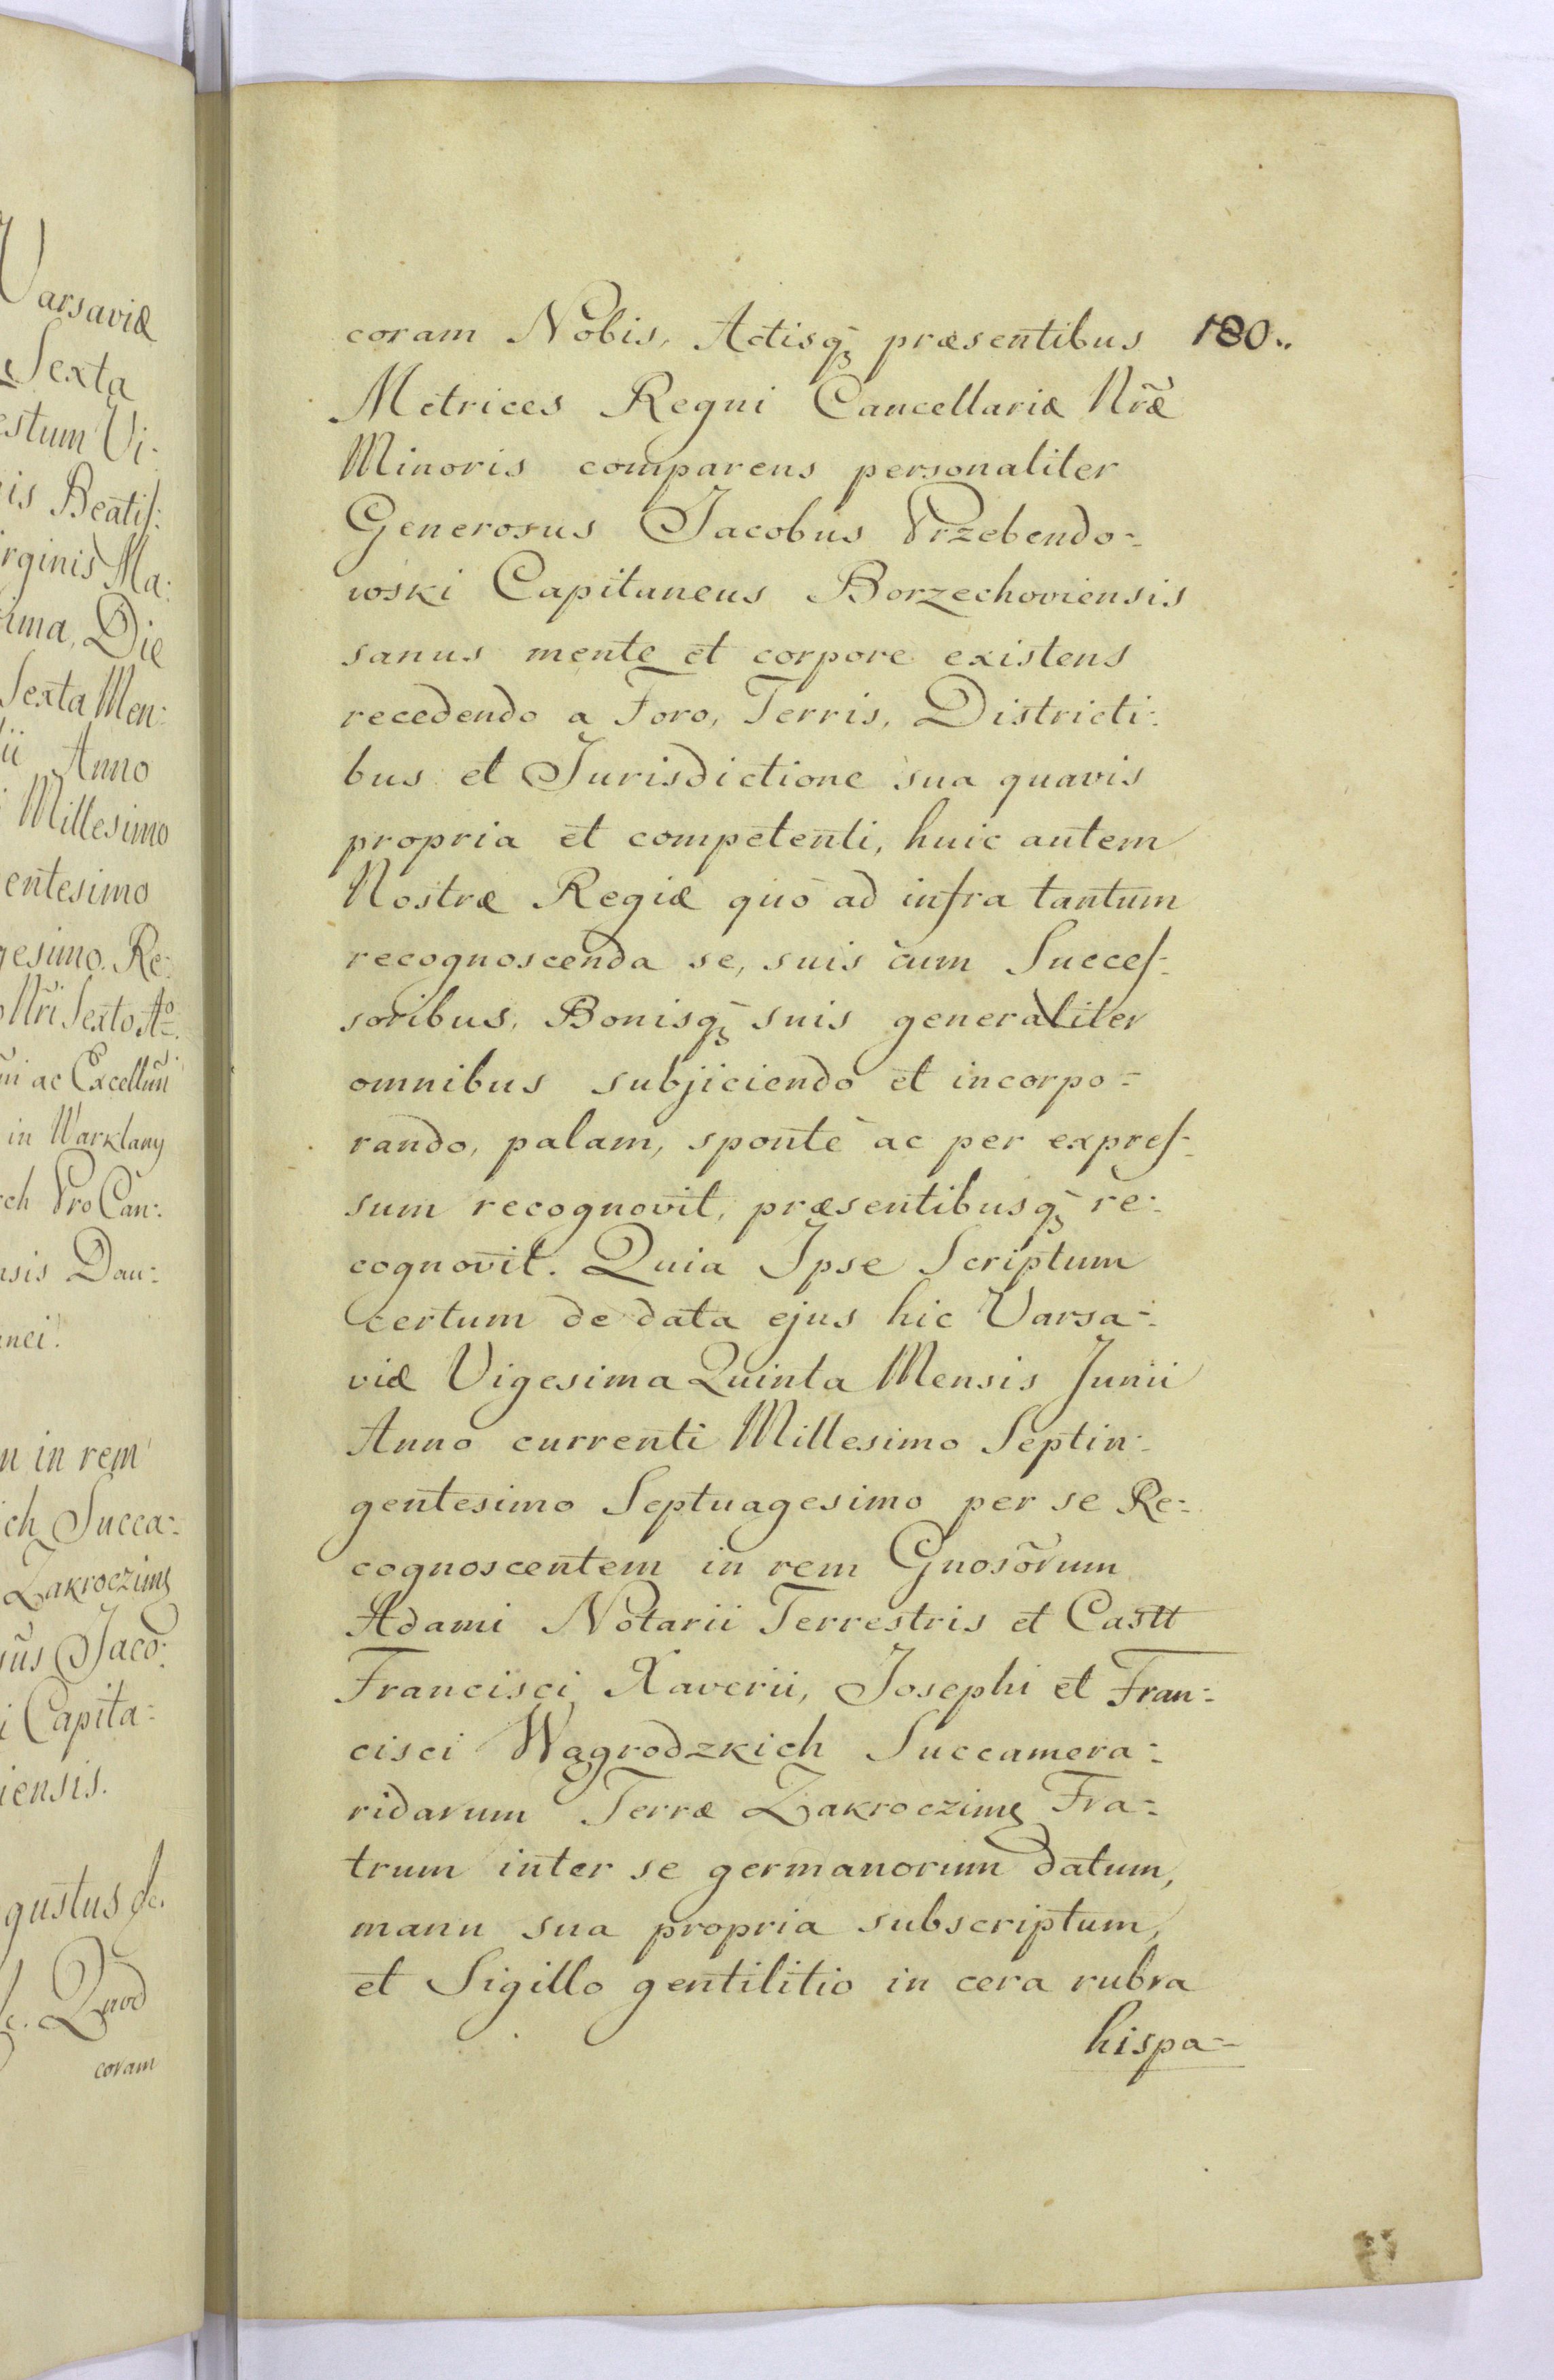 Varsaviæ
Sexta
estum Vi-
is Beatiſ:
irginis Ma:
ima, Die
Sexta Men:
ii Anno
Millesimo
entesimo
gesimo. Re:
Nr̃i Sexto Aº
ac Excellm̃i
in Warklany
ch ProCan:
nsis Dan:
nei.
in rem
ich Succa:
Zakroczimȩ
Jaco:
i Capita:
iensis.
gustus &c.
&c. Quod
coram
coram Nobis, Actisq̃ præsentibus 180.
Metrices Regni Cancellariæ Nr̃æ
Minoris comparens personaliter
Generosus Jacobus Przebendo-
wski Capitaneus Borzechoviensis
sanus mente et corpore existens
recedendo a Foro, Terris, Districti-
bus et Jurisdictione sua quavis
propria et competenti, huic autem
Nostræ Regiæ quò ad infra tantum
recognoscenda se, suis cum Succeſ-
soribus, Bonisq̃ suis generaliter
omnibus subjiciendo et incorpo-
rando, palam, sponte ac per expreſ-
sum recognovit, præsentibusq̃ re-
cognovit. Quia Ipse Scriptum
certum de data ejus hic Varsa-
viæ Vigesima Quinta Mensis Junii
Anno currenti Millesimo Septin-
gentesimo Septuagesimo per se Re-
cognoscentem in rem Gnosõrum
Adami Notarii Terrestris et Castt
Francisci Xaverii, Josephi et Fran-
cisci Wągrodzkich Succamera-
ridarum Terræ Zakroczimȩ Fra-
trum inter se germanorum datum,
manu sua propria subscriptum,
et Sigillo gentilitio in cera rubra
hispa-